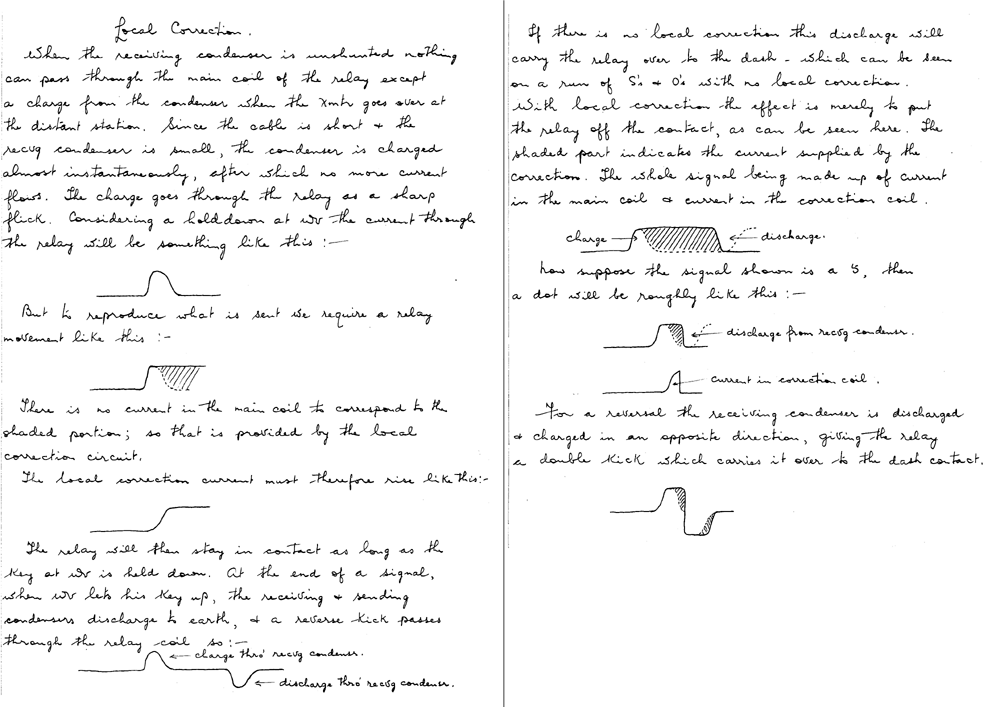 Local Correction.
When the receiving condenser is unshunted nothing
can pass through the main coil of the relay except
a charge from the condenser when the Xmtr goes over at
the distant station. Since the cable is short & the
recvg condenser is small, the condenser is charged
almost instantaneously, after which no more current
flows. The charge goes through the relay as a sharp
flick. Considering a hold down at WV the current through
the relay will be something like this :—
But to reproduce what is sent we require a relay
movement like this :—
There is no current in the main coil to correspond to the
shaded portion; so that is provided by the local
correction circuit.
The local correction current must therefore rise like this:-
The relay will then stay in contact as long as the
key at WV is held down. At the end of a signal,
when WV lets his key up, the receiving & sending
condensers discharge to earth, & a reverse kick passes
through the relay coil so:—
charge thro' recvg condenser.
discharge thro' recvg condenser.
If there is no local correction this discharge will
carry the relay over to the dash - which can be seen
on a run of S's & O's with no local correction.
With local correction the effect is merely to put
the relay off the contact, as can be seen here. The
shaded part indicates the current supplied by the
correction. The whole signal being made up of current
in the main coil & current in the correction coil.
charge
discharge.
Now suppose the signal shown is a 5, then
a dot will be roughly like this :—
discharge from recvg condenser.
current in correction coil.
For a reversal the receiving condenser is discharged
& charged in an opposite direction, giving the relay
a double kick which carries it over to the dash contact.